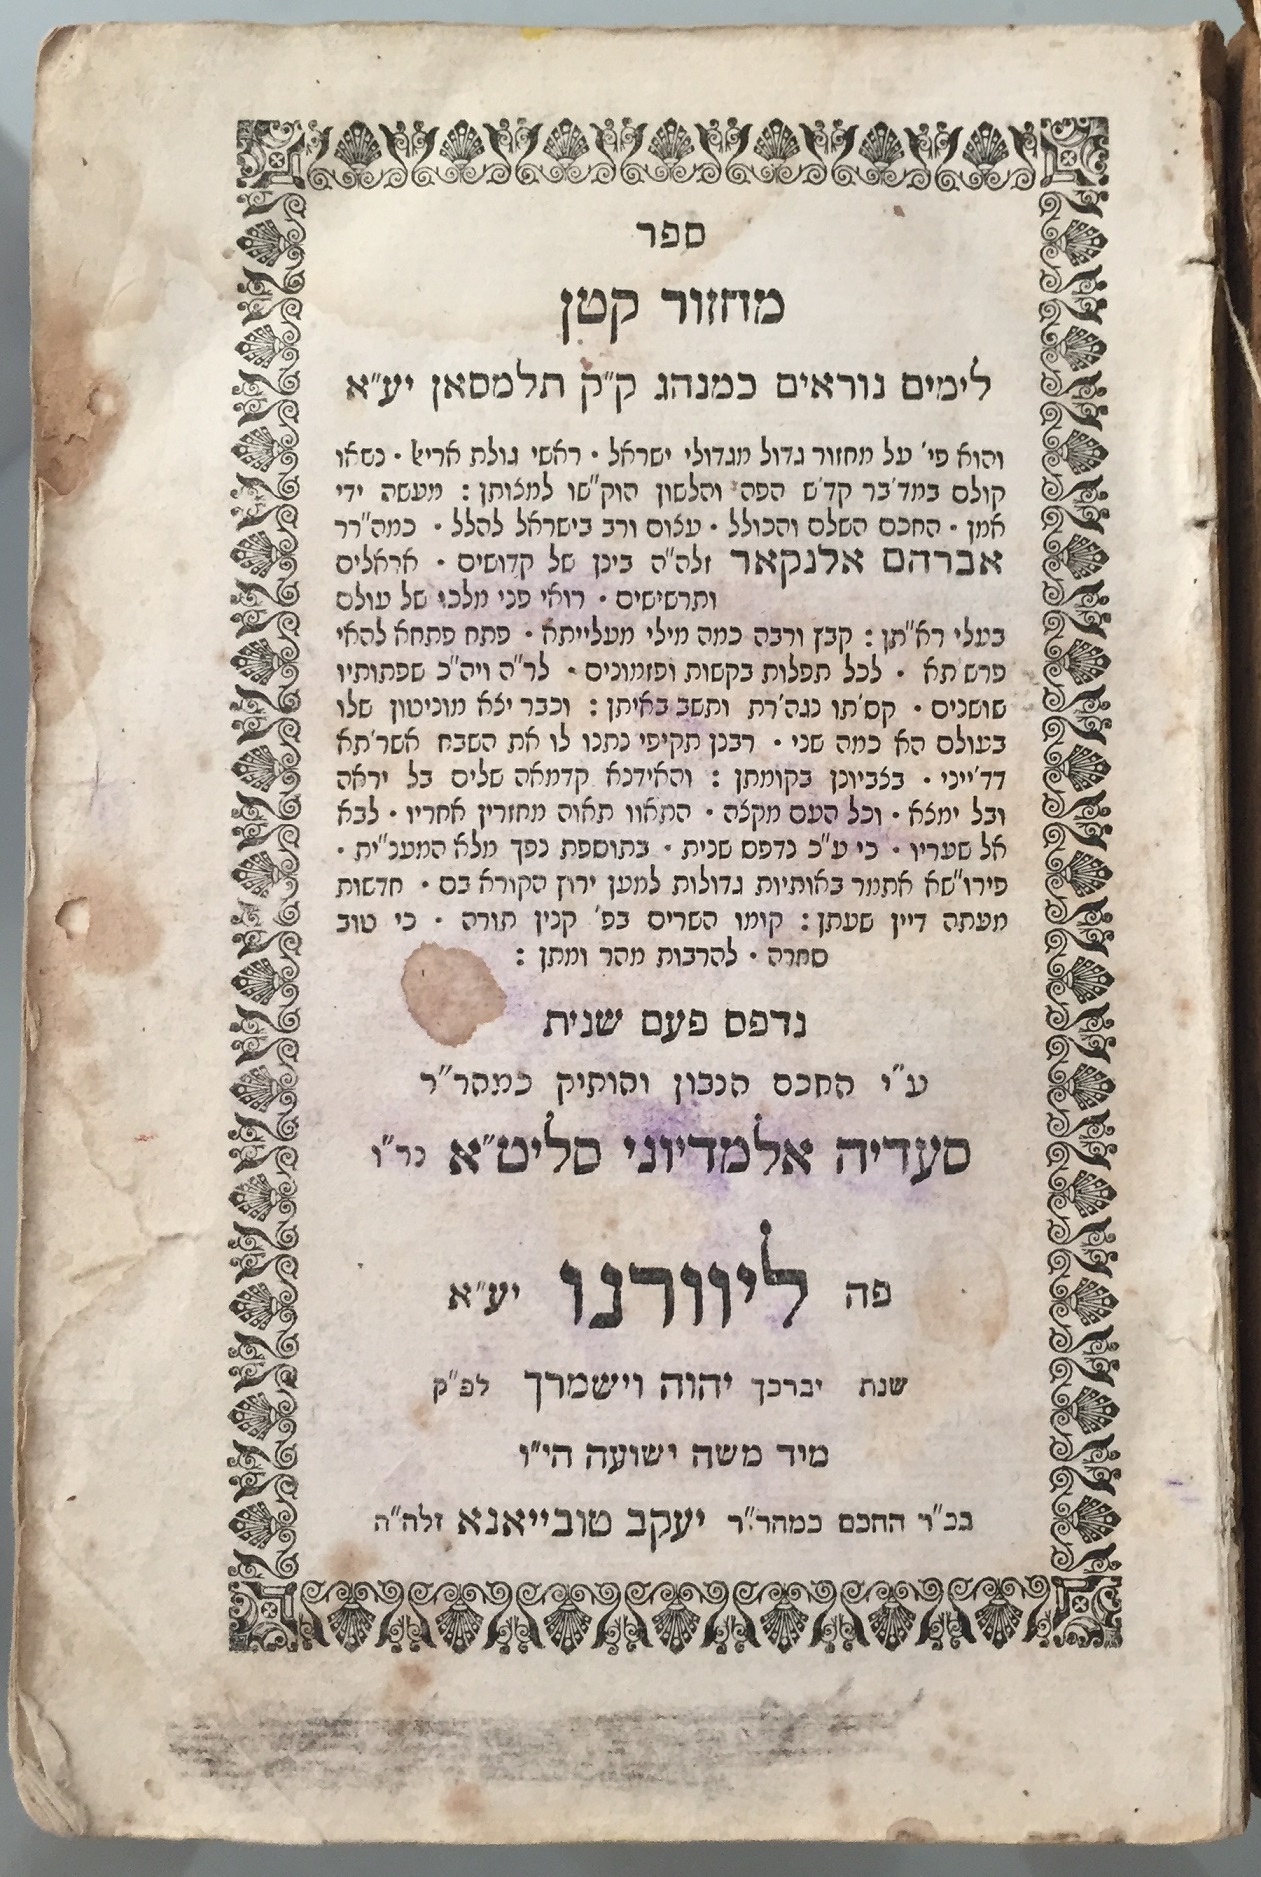 ספר
מחזור קטן
לימים נוראים כמנהג ק״ק תלמסאן יע״א
והוא פי׳ על מחזור גדול מגדולי ישראל · ראשי גולת אריאל · כשאו
קולם במד׳בר קד׳ש הפה והלשון הוק״שו למצותן : מעשה ידי
אמן · החכם השלם והכולל · עצום ורב בישראל להלל · כמה״רר
אברהם אלנקאר זלה״ה ביכן של קדושים · אראלים
ותרשישים · רואי פני מלכו של עולם
בעלי רא״תן : קבץ ורבה כמה מילי מעלייתא · פתח פתחא להאי
פרש׳תא · לכל תפלות בקשות ופזמונים · לר״ה ויה״כ שפתותיו
שושנים · קס׳תו כנה׳רת ותשב באיתן : וכבר יצא מוניטון שלו
בעולם הא כמה שני · רבנן תקיפי נתנו לו את השבח אשר׳תא
דד׳ייני · בצביונן בקומתן : והאידנא קדמאה שלים בל יראה
ובל ימצא · וכל העם מקצה · התאוו תאוה מחזרין אחריו · לבא
אל שעריו · כי ע״כ נדפס שנית · בתוספת נפך מלא המענ״ית ·
פירו״שא אתמר באותיות גדולות למען ירוץ הקורא בם · חדשות
מעתה דיין שעתן : קומו השרים בפ׳ קנין תורה · כי טוב
סחרה · להרבות מהר ומתן :
נדפס פעם שנית
ע״י החכם הנבון והותיק כמהר״ר
סעדיה אלמדיוני סליט״א כר״ו
פה ליוורנו יע״א
שנת יברכך יהוה וישמרך לפ״ק
מיד משה ישועה הי״ו
בכ״ר החכם כמהר״ר יעקב טובייאנא זלה״ה